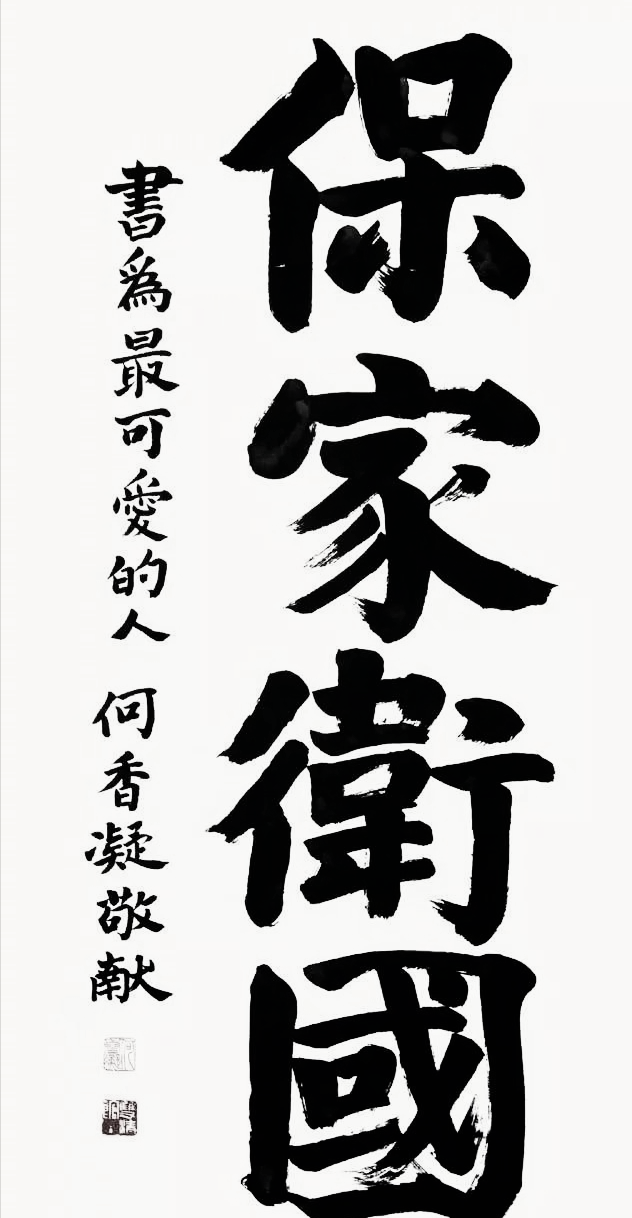 保家衛國
書爲最可愛的人 何香凝敬献